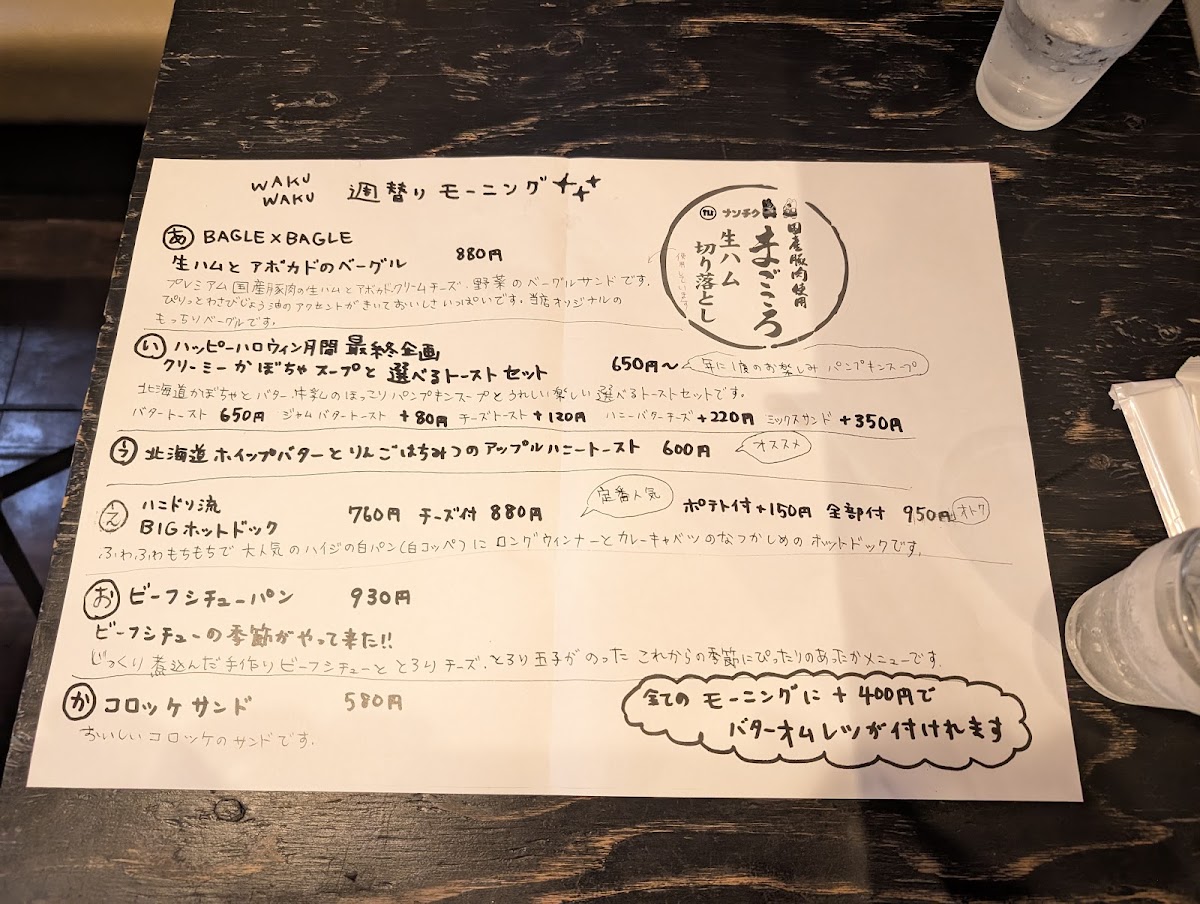 WAKU
WAKU
週替りモーニング
あ BAGLE×BAGLE
生ハムとアボカドのベーグル 880円
プレミアム国産豚肉の生ハムとアボカドクリームチーズ・野菜のベーグルサンドです。
ぴりっとわさびじょう油のアクセントがきいておいしさいっぱいです。当店オリジナルの
もっちりベーグルです。
ナンチク
国産豚肉使用
まごころ
生ハム
切り落とし
使用しています
い ハッピーハロウィン月間 最終企画
クリーミーかぼちゃスープと 選べるトーストセット 650円〜 年に1度のお楽しみ パンプキンスープ
北海道かぼちゃとバター、牛乳のほっこりパンプキンスープとうれしい楽しい選べるトーストセットです。
バタートースト 650円 ジャムバタートースト +80円 チーズトースト +120円 ハニーバターチーズ +220円 ミックスサンド +350円
う 北海道ホイップバターとりんごはちみつのアップルハニートースト 600円 オススメ
え ハニドリ流
BIGホットドック 760円 チーズ付 880円 定番人気 ポテト付+150円 全部付 950円 オトク
ふわふわもちもちで大人気のハイジの白パン(白コッペ)にロングウィンナーとカレーキャベツのなつかしめのホットドックです。
お ビーフシチューパン 930円
ビーフシチューの季節がやって来た!!
じっくり煮込んだ手作りビーフシチューと とろりチーズ、とろり玉子がのった これからの季節にぴったりのあったかメニューです。
か コロッケサンド 580円
おいしいコロッケのサンドです。
全ての モーニングに +400円で
バターオムレツが付けれます